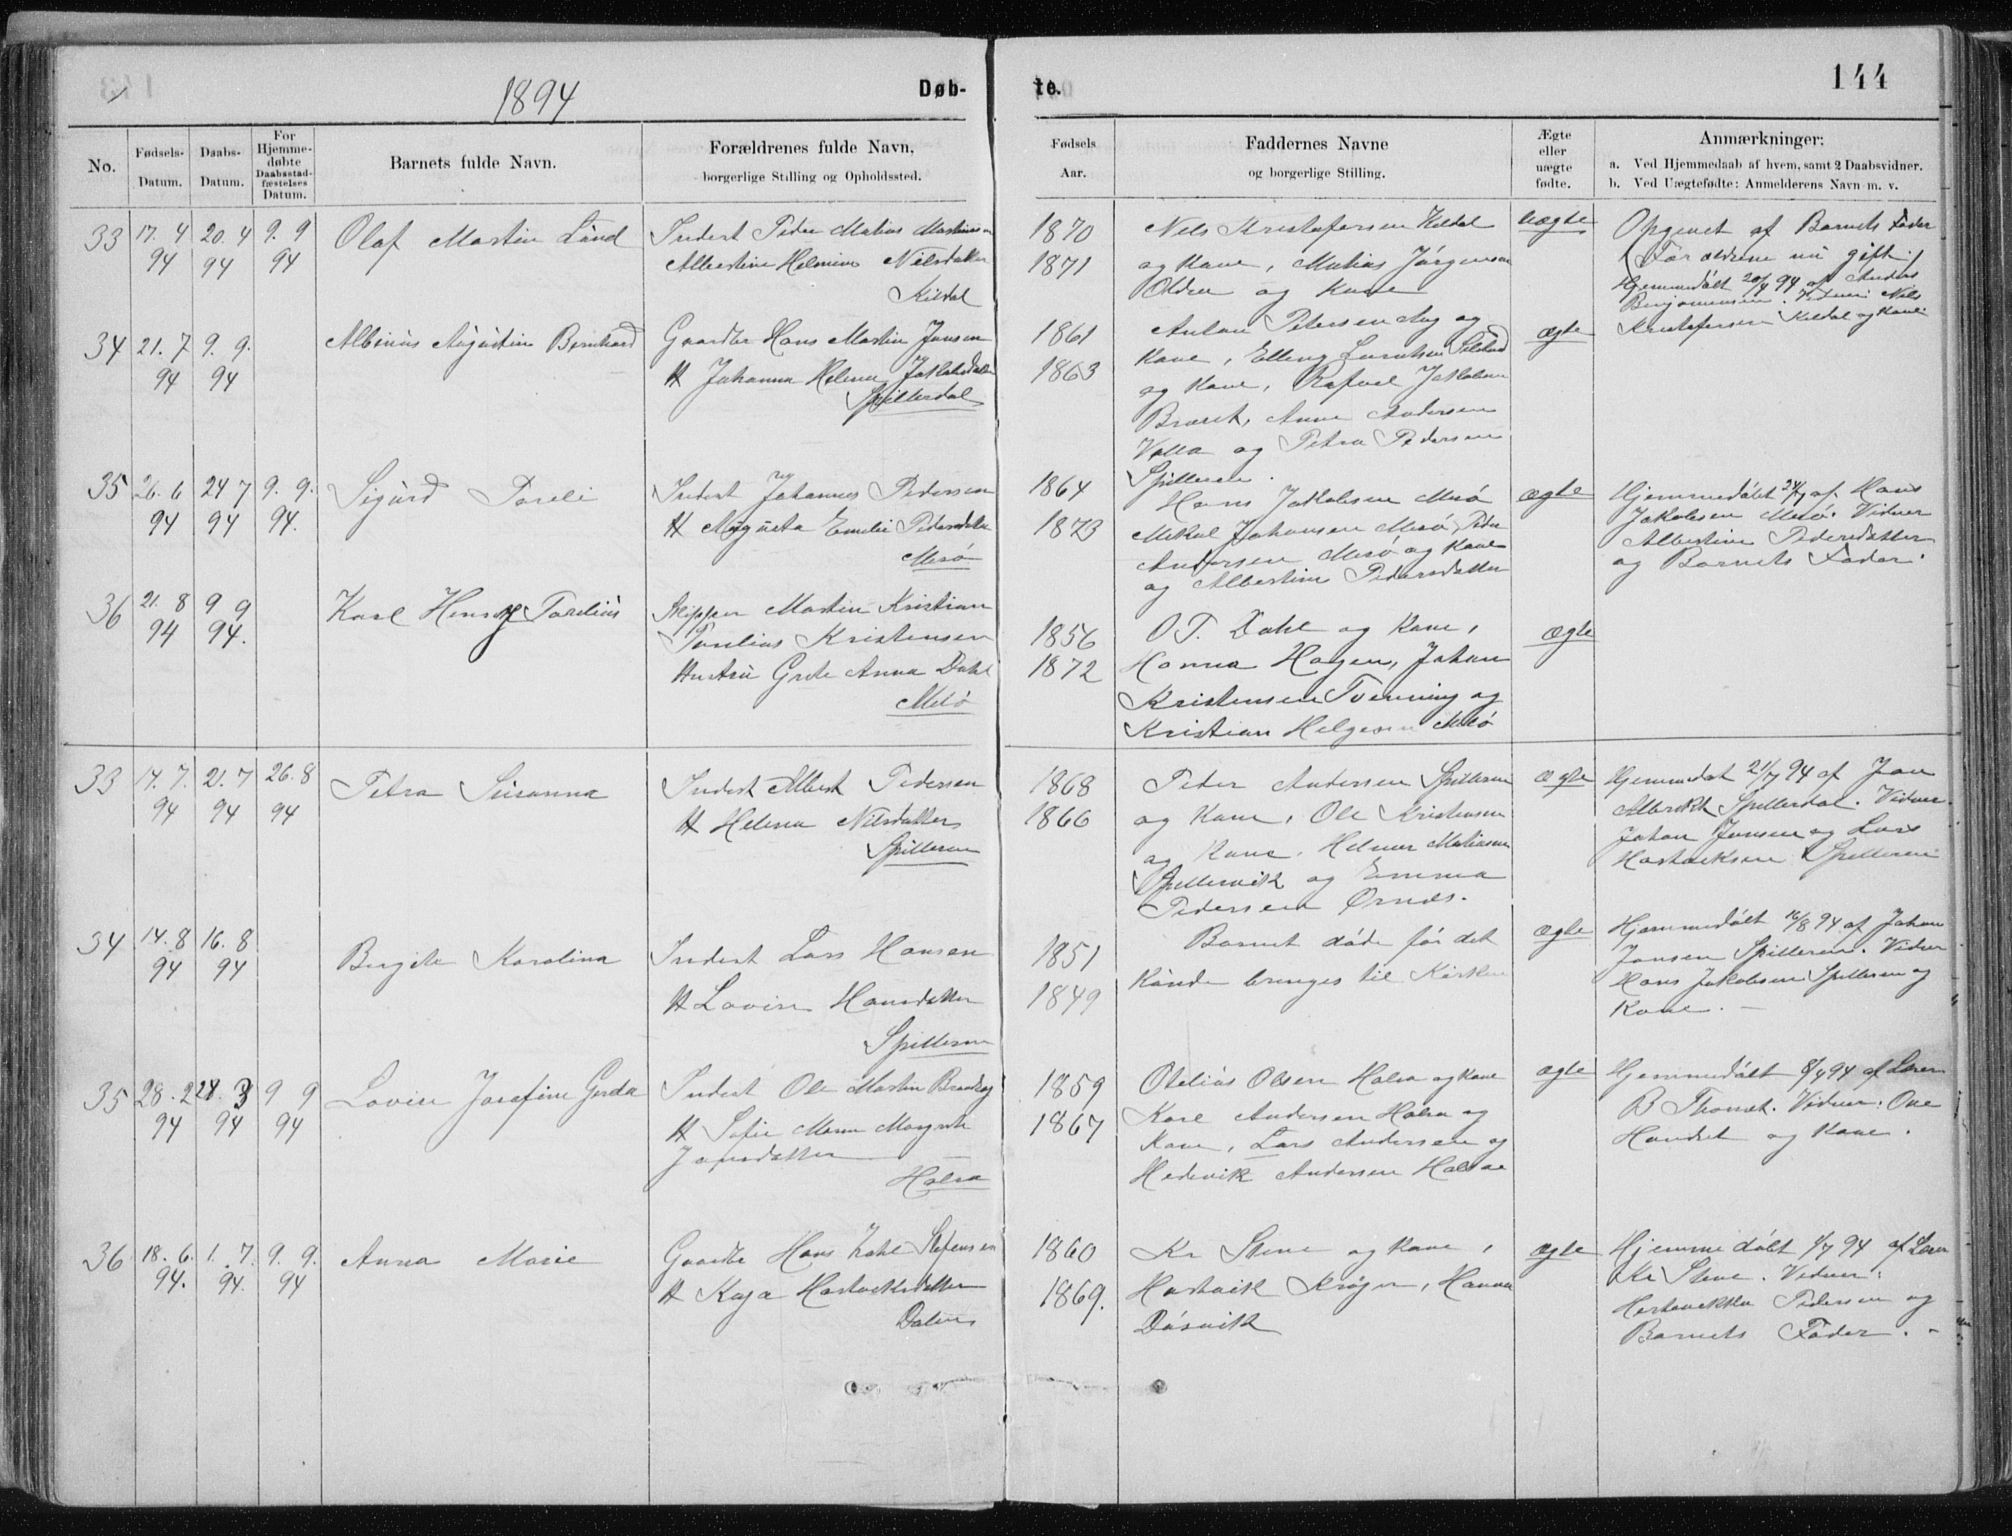 1894
Døb-
te.
144
No.
Fødsels-
Datum.
Daabs-
Datum.
For
Hjemme-
døbte
Daabsstad-
fæstelses
Datum.
Barnets fulde Navn.
Forældrenes fulde Navn,
borgerlige Stilling og Opholdssted.
Fødsels
Aar.
Faddernes Navne
og borgerlige Stilling.
Ægte
eller
uægte
fødte.
Anmærkninger:
a. Ved Hjemmedaab af hvem, samt 2 Daabsvidner.
b. Ved Uægtefødte: Anmelderens Navn m. v.
33 17. 4 20. 4 9. 9
94 94 94
Olaf Martin
Inderst Peder Matias
Albertine Nilsdatter
Kildal
1870
1871
Nels Kristofersen Kildal
og Kone, Matias Jørgensen
og Kone
uægte
Opgivet af Barnets Fader
Forældrene nu gift
Hjemmedøbt 20/4 94 af Anders
Benjaminsen. Vidner Nils
Kristofersen Kildal og Kone.
34 21. 7 9. 9.
94 94
Albinus Augustin Bernhard
Gaardbr Hans Martin Jensen
H Johanna Helena Jakobsdatter
Spillerdal
1861
1863
Anton Petersen og
Kone, Elling
og Kone, Rafael Jakobsen
Anne Andersen
Valla og Petra Pedersen
Spilleren.
ægte
35 26. 6 24 7 9. 9.
94 94 94.
Sigurd Toreli
Inderst Johannes Pedersen
H Augusta Emilie Pedersdatter
Mesø
1864
1873
Hans Jakobsen Mesø
Mikal Johansen Mesø, Peder
Andersen Mesø og Kone
og Albertine Pedersdatter
ægte
Hjemmedøbt 24/7 af Hans
Jakobsen Mesø. Vidner
Albertine Pedersdatter
og Barnets Fader.
36 21. 8 9 9
94 94.
Karl Henry Torelius
Skipper Martin Kristian
Torelius Kristensen
Hustru Grete Anna Dahl
Mesø
1856
1872
O T. Dahl og Kone,
Hanna Hagen, Johan
Kristensen Tverning og
Kristian Helgesen Mesø
ægte
33 14. 7. 21. 7 26. 8
94 94 94
Petra Susanna
Inderst Albert Pedersen
H Helena Nilsdatter
Spilleren
1868
1866
Peder Andersen Spilleren
og Kone, Ole Kristensen
og Kone. Helmer Matiasen
Spillervik og Emma
Pedersen Ørnes.
ægte
Hjemmedøbt 21/7 94 af Jon
Albrikt Spillerdal. Vidner
Johan Jensen og Lars
Hartviksen Spilleren
34 14. 8 16. 8
94 94
Birgite Karolina
Inderst Lars Hansen
H Lovise Hansdatter
Spilleren
1851
1849
Barnet døde før det
kunde bringes til Kirken
ægte
Hjemmedøbt 16/8 94 af Johan
Jensen Spilleren. Vidner
Hans Jakobsen Spilleren og
Kone. –
35 28. 2 28. 3 9 9
94 94 94
Lovise Josefine Gerda
Inderst Ole Martin
H Sofie Maria Margrete
Jonsdatter
Halsa
1859
1867
Otelius Olsen Halsa og Kone
Karl Andersen Halsa og
Kone, Lars Andersen og
Hedevik Andersen Halsa
ægte
Hjemmedøbt 94 af Lærer
B Vidner: Ove
og Kone.
36 18. 6. 1. 7. 9. 9.
94. 94. 94
Anna Marie
Gaardbr Hans Zahl Stefensen
H Kaja Hartviksdatter
Dalen
1860
1869.
Kr Stene og Kone,
Hartvik Krøger, Hanna
Døsvik
ægte
Hjemmedøbt 1/7 94 af Lærer
Kr Stene. Vidner:
Pedersen og
Barnets Fader. –